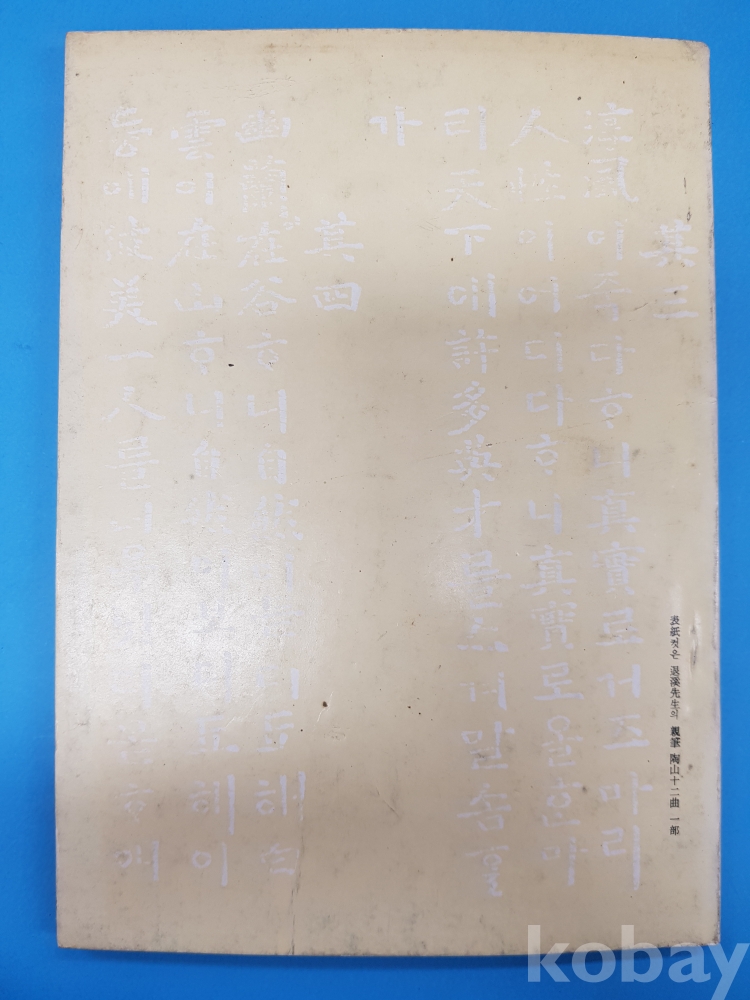 其三
淳風이죽다ᄒᆞ니眞實로거즈마리
人性이어디다ᄒᆞ니眞實로올ᄒᆞᆫ마
리天下애許多英才를소겨말솜ᄒᆞᆯ
가
其四
幽蘭이在谷ᄒᆞ니自然이듣디됴해白
雲이在山ᄒᆞ니自然이보디됴해이
듕에彼美一人를 ᄒᆞ얘
表紙컷은 退溪先生의 親筆 陶山十二曲 一部
kobay